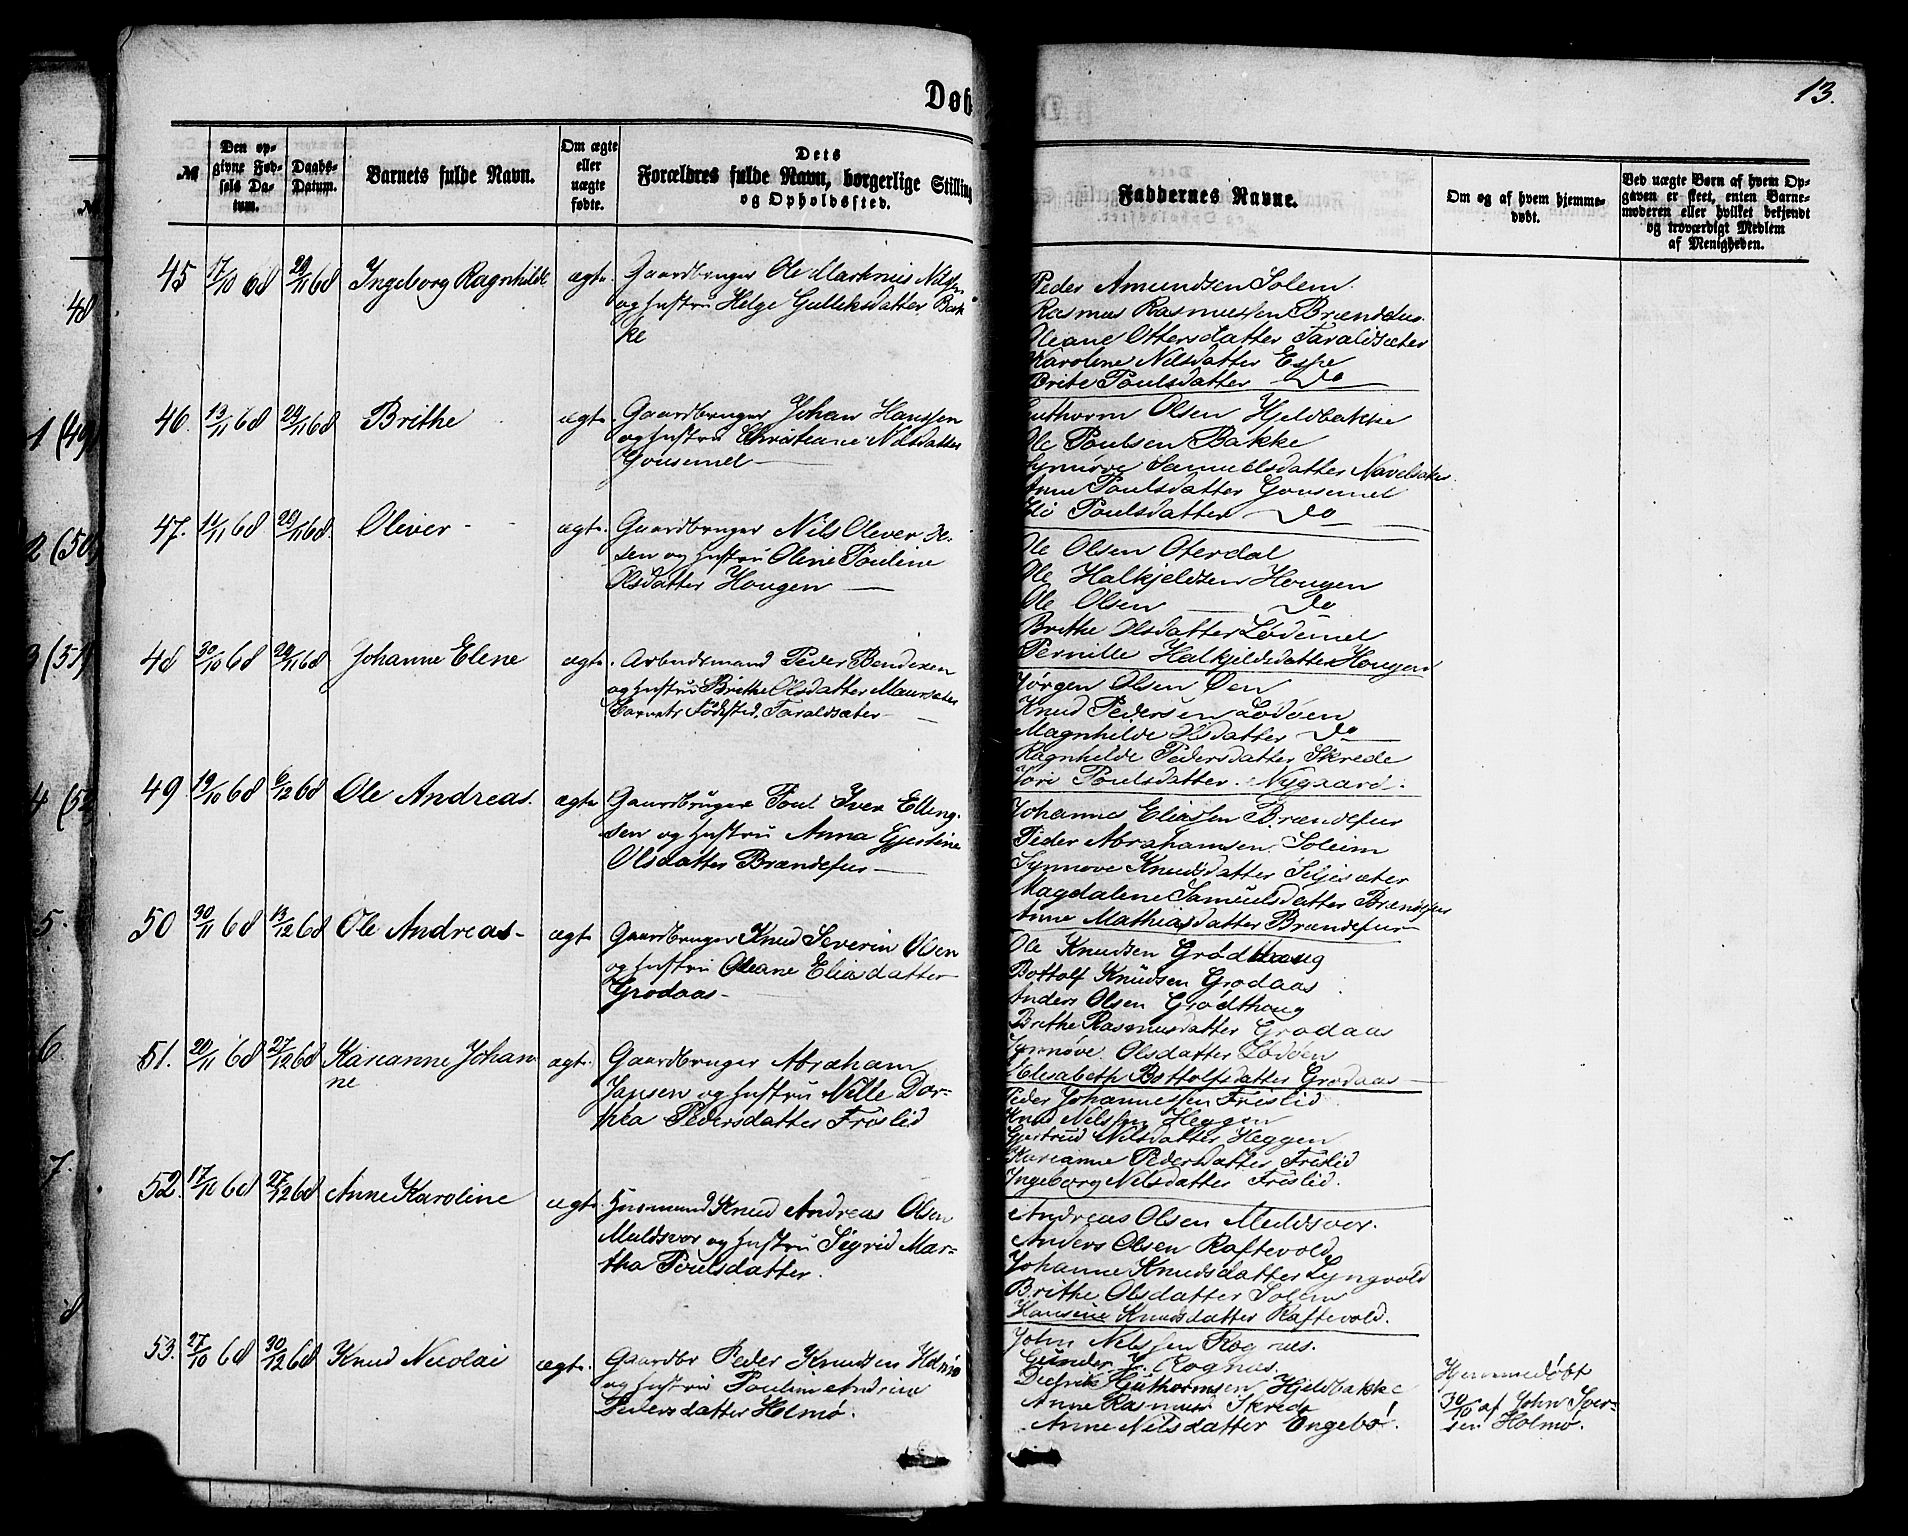 Døb
13.
№
Den op-
givne Fød-
sels Da-
tum.
Daabs-
Datum.
Barnets fulde Navn.
Om ægte
eller
uægte
fødte.
Dets
Forældres fulde Navn, borgerlige Stilling
og Opholdssted.
Faddernes Navne.
Om og af hvem hjemme-
døbt.
Ved uægte Børn af hvem Op-
gaven er skeet, enten Barne-
moderen eller hvilket bekjendt
og troværdigt Medlem
af Menigheden.
45 17/10 68 29/11 68 Ingeborg Ragnhilde ægte
Gaardbruger Ole Marknus Nilsen
og hustru Helge Gulleksdatter Bak
ke
Peder Amundsen Solem.
Rasmus Rasmussen Brændefur.
Oleane Ottersdatter Taraldsæter
Karoline Nilsdatter Espe
Brite Poulsdatter Do
46. 13/11 68 29/11 68 Brithe ægte.
Gaardbruger Johan Hanssen
og hustru Christiane Nilsdatter
Gousemel
Guthorm Olsen Hjeldbakke
Ole Poulsen Bakke
Synnøve Samuelsdatter Navelsaker
Anne Poulsdatter Gousemel
Poulsdatter Do
47. 11/11 68 29/11 68. Oliver ægte.
Gaardbruger Nils Oliver Ol-
sen og hustru Oline Pouline
Olsdatter Hougen
Ole Olsen Oterdal
Ole Halkjeldsen Hougen
Ole Olsen Do
Brithe Olsdatter Lødemel
Pernille Halkjeldsdatter Hougen
48 30/10 68 29/11 68 Johanne Elene ægte.
Arbeidsmand Peder Bendixen
og hustru Brithe Olsdatter Maursæter
Barnets Fødested. Taraldsæter
Jørgen Olsen Øen
Knud Pedersen Lødøen
Magnhilde Olsdatter Do
Ragnhilde Pedersdatter Skrede
Jori Poulsdatter. Nygaard.
49 19/10 68 6/12 68 Ole Andreas. ægte
Gaardbruger Poul Iver Elling-
sen og hustru Anna Gjertine
Olsdatter Brændefur
Johannes Eliassen Brændefur
Peder Abrahamsen Soleim
Synnøve Knudsdatter Siljesæter
Magdalene Samuelsdatter Brændefur
Anne Mathiasdatter Brændefur
50 30/11 68 13/12 68 Ole Andreas ægte
Gaardbruger Knud Severin Olsen
og hustru Oleane Eliasdatter
Grodaas
Ole Knudsen Grødthaug
Bottolf Knudsen Grodaas
Anders Olsen Grødthoug
Brithe Rasmusdatter Grodaas
Synnøve Olsdatter Lødøen
Elisabeth Bottolfsdatter Grodaas
51. 20/11 68 27/12 68 Karianne Johan-
ne
ægte.
Gaardbruger Abraham
Jansen og hustru Nille Dor-
thea Pedersdatter Frislid
Peder Johannessen Frislid.
Knud Nilssen Heggen
Gjertrud Nilsdatter Heggen
Karianne Pedersdatter Frislid
Ingeborg Nilsdatter Frislid.
52. 17/10 68 27/12 68 Anne Karoline ægte.
Husmand Knud Andreas Olsen
Muldsvor og hustru Sigrid Mar-
tha Poulsdatter.
Andreas Olsen Muldsvor.
Anders Olsen Raftevold
Johanne Knudsdatter Lyngvold
Brithe Olsdatter Solem
Hansine Knudsdatter Raftevold.
53. 27/10 68 30/12 68 Knud Nicolai ægte.
Gaardbr Peder Knudsen Holmø
og hustru Pouline Andrine
Pedersdatter Holmø.
John Nilssen Rognes.
Gunder J. Rognes.
Diedrik Guthormsen Hjeldbakke
Anne Rasmusd Skrede
Anne Nilsdatter Ongebø.
Hjemmedøbt
30/10 af John Iver-
sen Holmø.
48
1 (49)
2 (50)
3 (51)
4 (52
5.
6.
7.
8